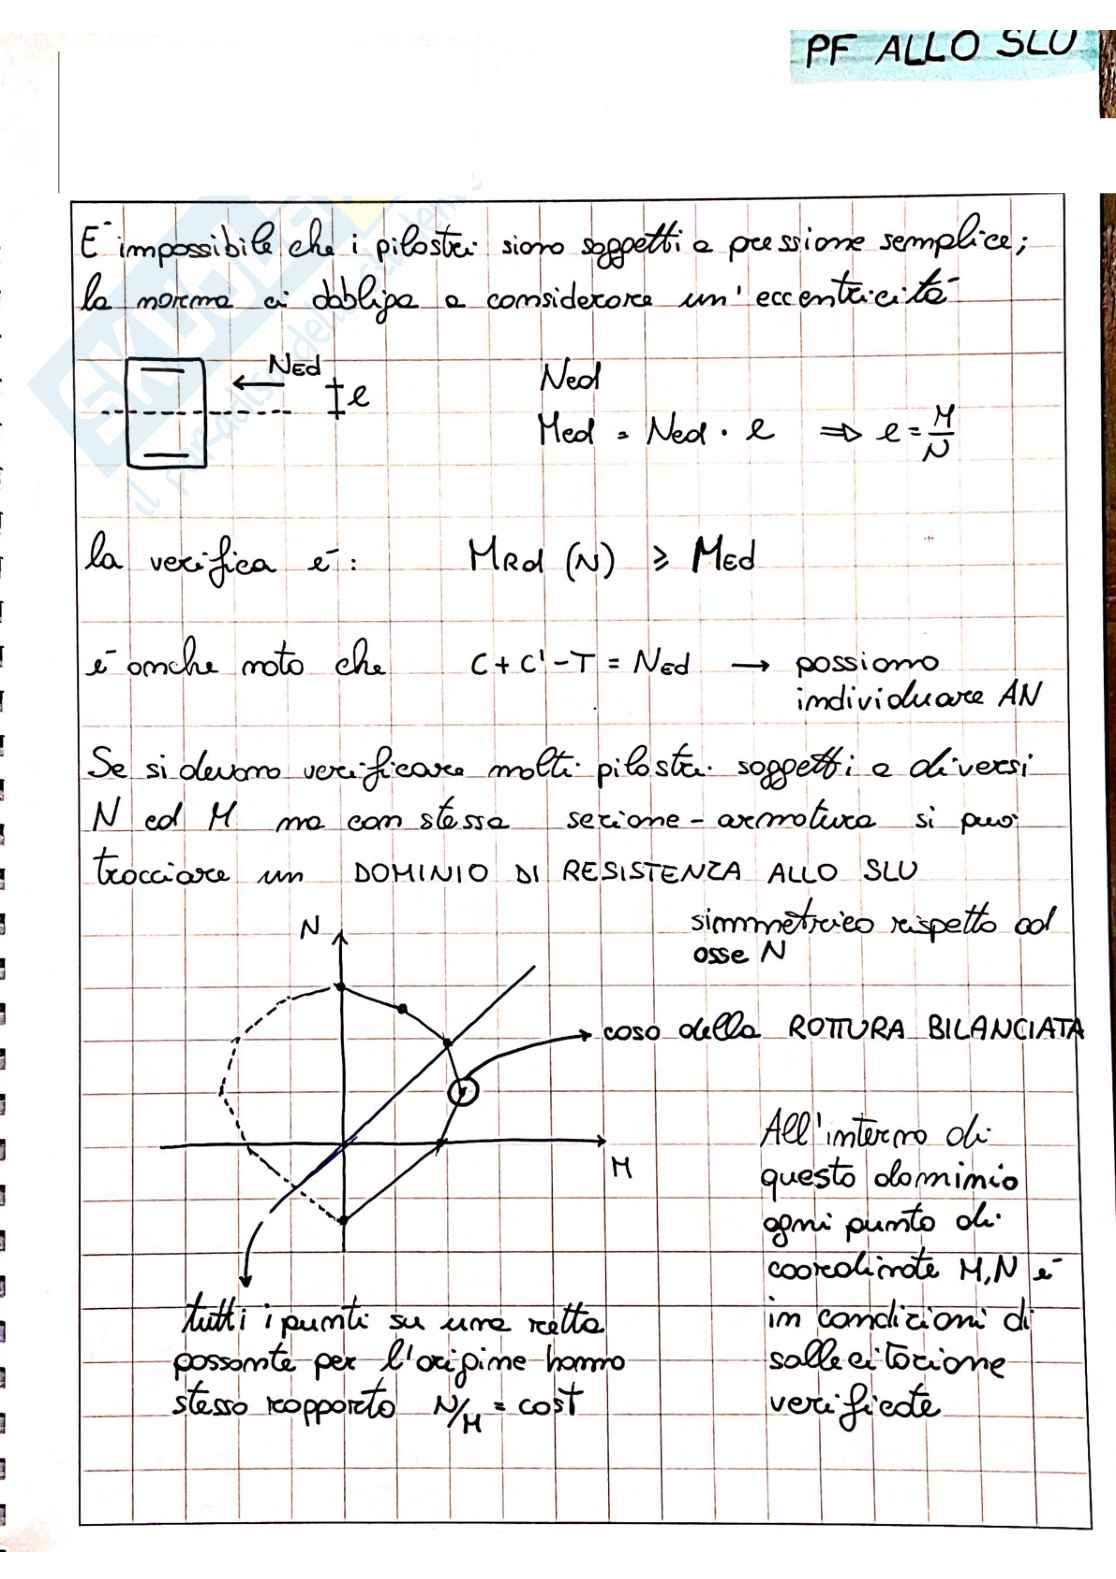 PF ALLO SLU
E' impossibile che i pilastri siano soggetti a pressione semplice;
la norma ci obbliga a considerare un'eccentricità
NEd
e
Ned
Med = Ned · e ⇒ e = M/N
la verifica è: MRd (N) ≥ MEd
è anche noto che C + C' - T = NEd → possiamo
individuare AN
Se si devono verificare molti pilastri soggetti a diversi
N ed M ma con stessa sezione-armatura si può
tracciare un DOMINIO DI RESISTENZA ALLO SLU
simmetrico rispetto ad
asse N
N
caso della ROTTURA BILANCIATA
M
All'interno di
questo dominio
ogni punto di
coordinate M,N è
in condizioni di
sollecitazione
verificate
tutti i punti su una retta
passante per l'origine hanno
stesso rapporto N/M = cost